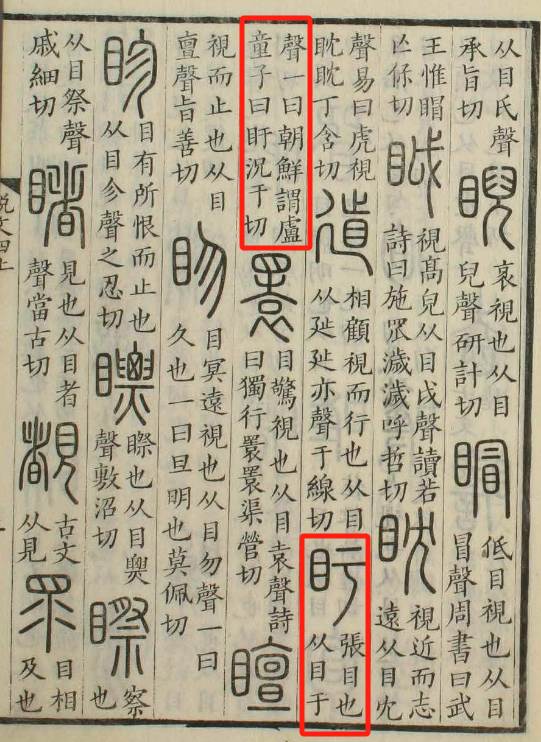 从目氐聲
承旨切
睨
衺視也从目
兒聲研計切
睸
低目視也从目
冒聲周書曰武
王惟睸
亾保切
眓
視高皃从目戉聲讀若
詩曰施罛濊濊呼哲切
眈
視近而志
遠从目冘
聲易曰虎視
眈眈丁含切
相顧視而行也从目
从㢟㢟亦聲于線切
盱
張目也
从目于
聲一曰朝鮮謂盧
童子曰盱況于切
瞏
目驚視也从目袁聲詩
曰獨行瞏瞏渠營切
䁴
視而止也从目
亶聲旨善切
䀛
目冥遠視也从目勿聲一曰
久也一曰旦明也莫佩切
眕
目有所恨而止也
从目㐱聲之忍切
瞟
䁓也从目㶾
聲敷沼切
䁓
察
也
从目祭聲
戚細切
睹
見也从目者
聲當古切
覩
古文
从見
眔
目相
及也
說文四上